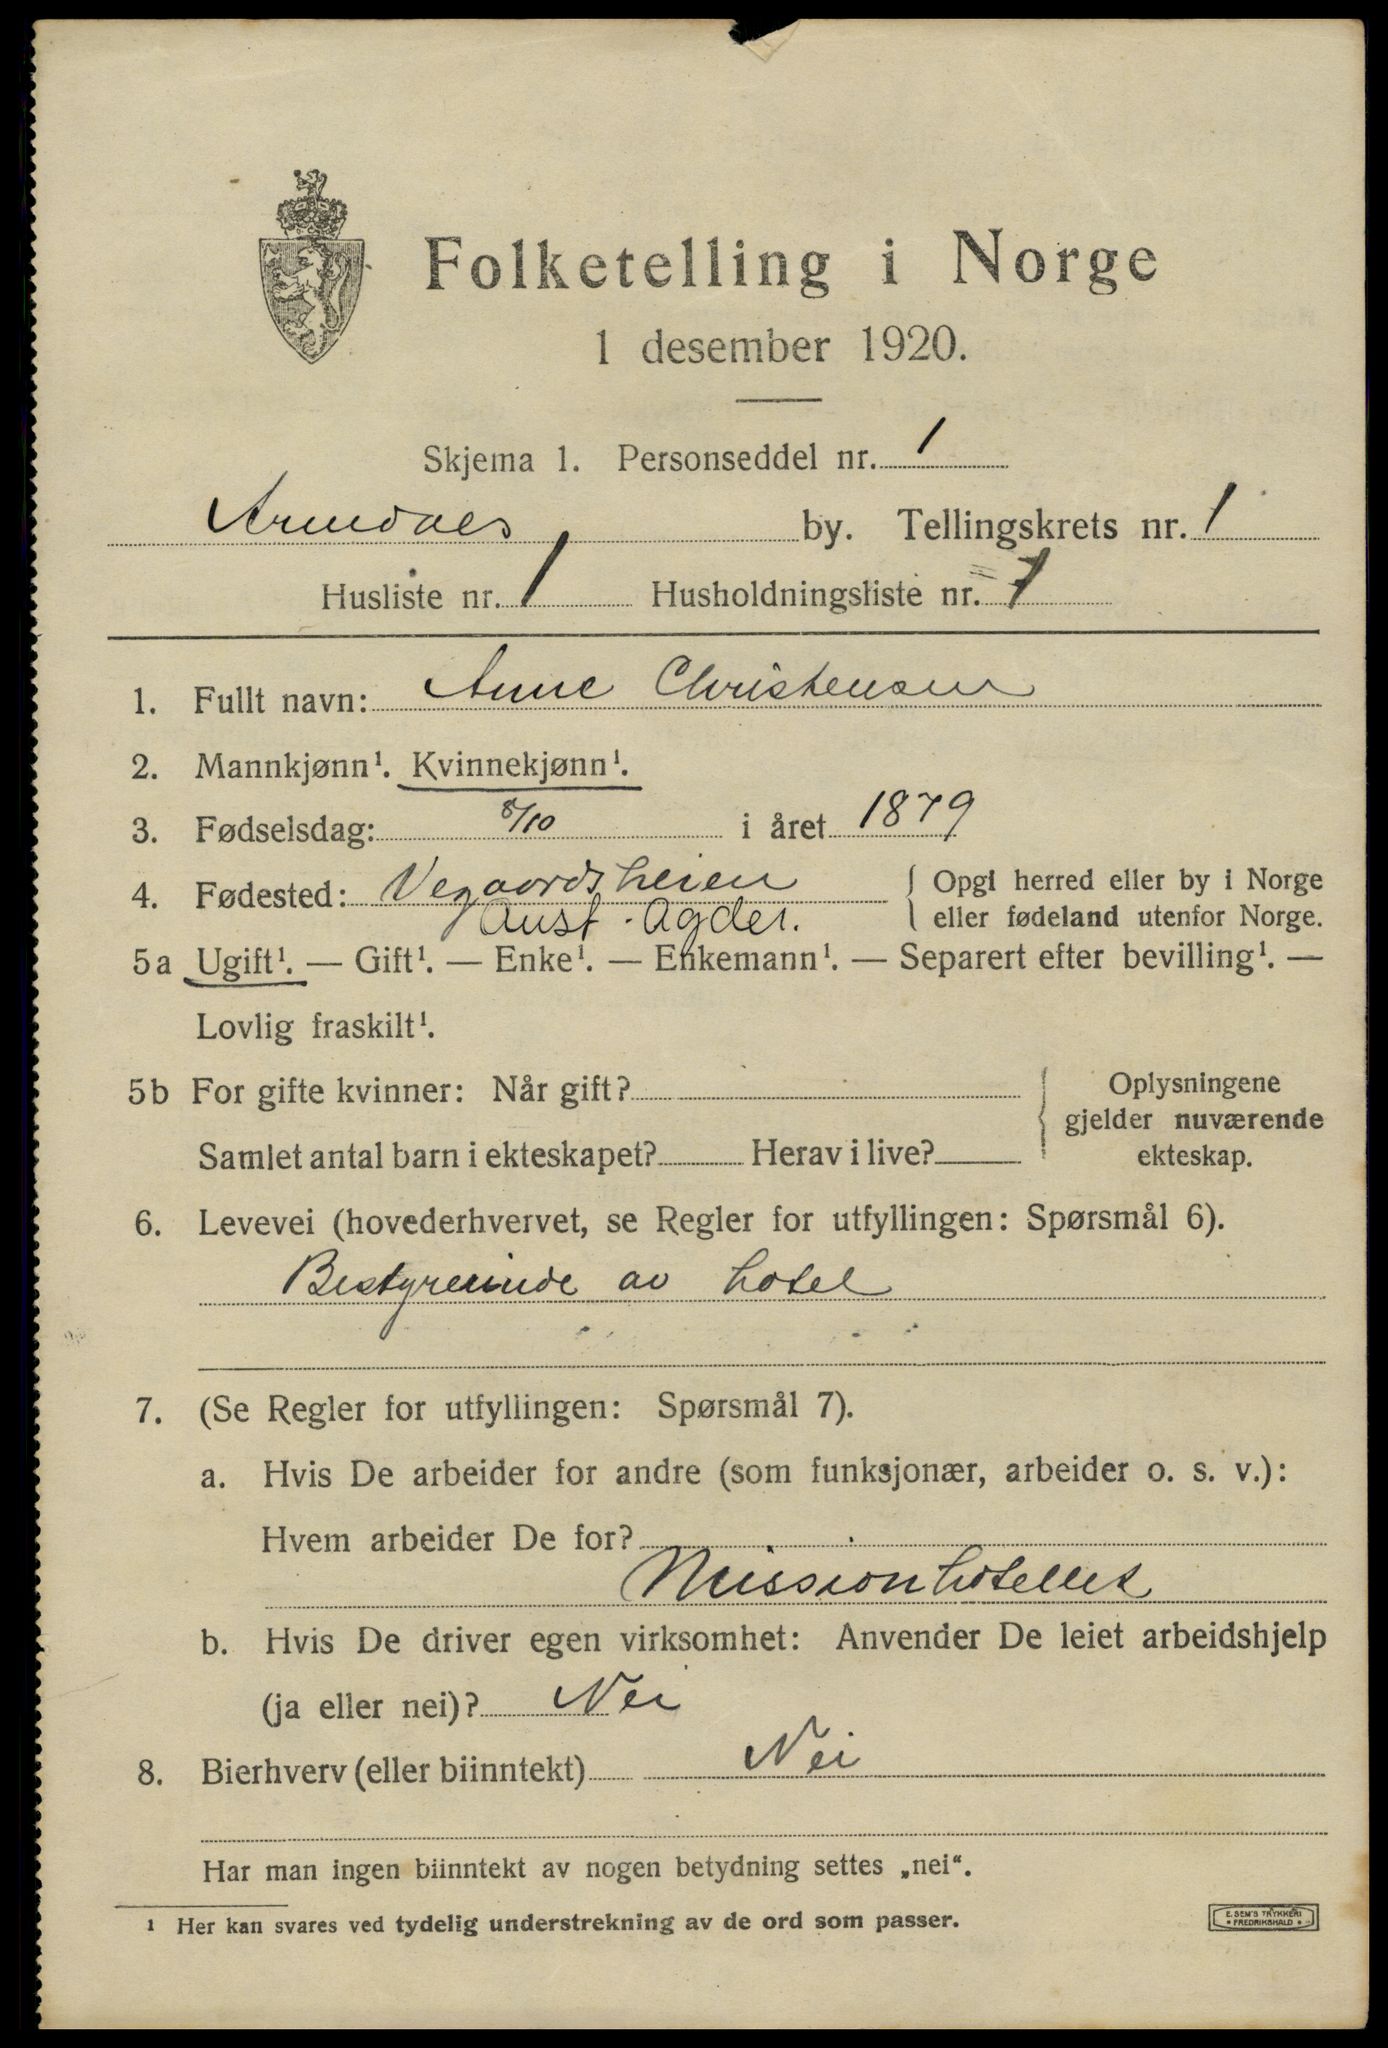 Folketelling i Norge
1 desember 1920.
Skjema 1. Personseddel nr. 1
Arendals by. Tellingskrets nr. 1
Husliste nr. 1 Husholdningsliste nr. 1
1. Fullt navn: Anne Christensen
2. Mannkjønn¹. Kvinnekjønn¹.
3. Fødselsdag: 8/10 i året 1879
4. Fødested: Vegaardsheien { Opgi herred eller by i Norge
Aust-Agder. eller fødeland utenfor Norge.
5a Ugift¹. — Gift¹. — Enke¹. — Enkemann¹. — Separert efter bevilling¹. —
Lovlig fraskilt¹.
5b For gifte kvinner: Når gift? Oplysningene
gjelder nuværende
Samlet antal barn i ekteskapet? Herav i live? ekteskap.
6. Levevei (hovederhvervet, se Regler for utfyllingen: Spørsmål 6).
Bestyrerinde av hotel
7. (Se Regler for utfyllingen: Spørsmål 7).
a. Hvis De arbeider for andre (som funksjonær, arbeider o. s. v.):
Hvem arbeider De for?
Missionhotellet
b. Hvis De driver egen virksomhet: Anvender De leiet arbeidshjelp
(ja eller nei)? Nei
8. Bierhverv (eller biinntekt) Nei
Har man ingen biinntekt av nogen betydning settes „nei“.
¹ Her kan svares ved tydelig understrekning av de ord som passer.
E. SEM'S TRYKKERI
FREDRIKSHALD